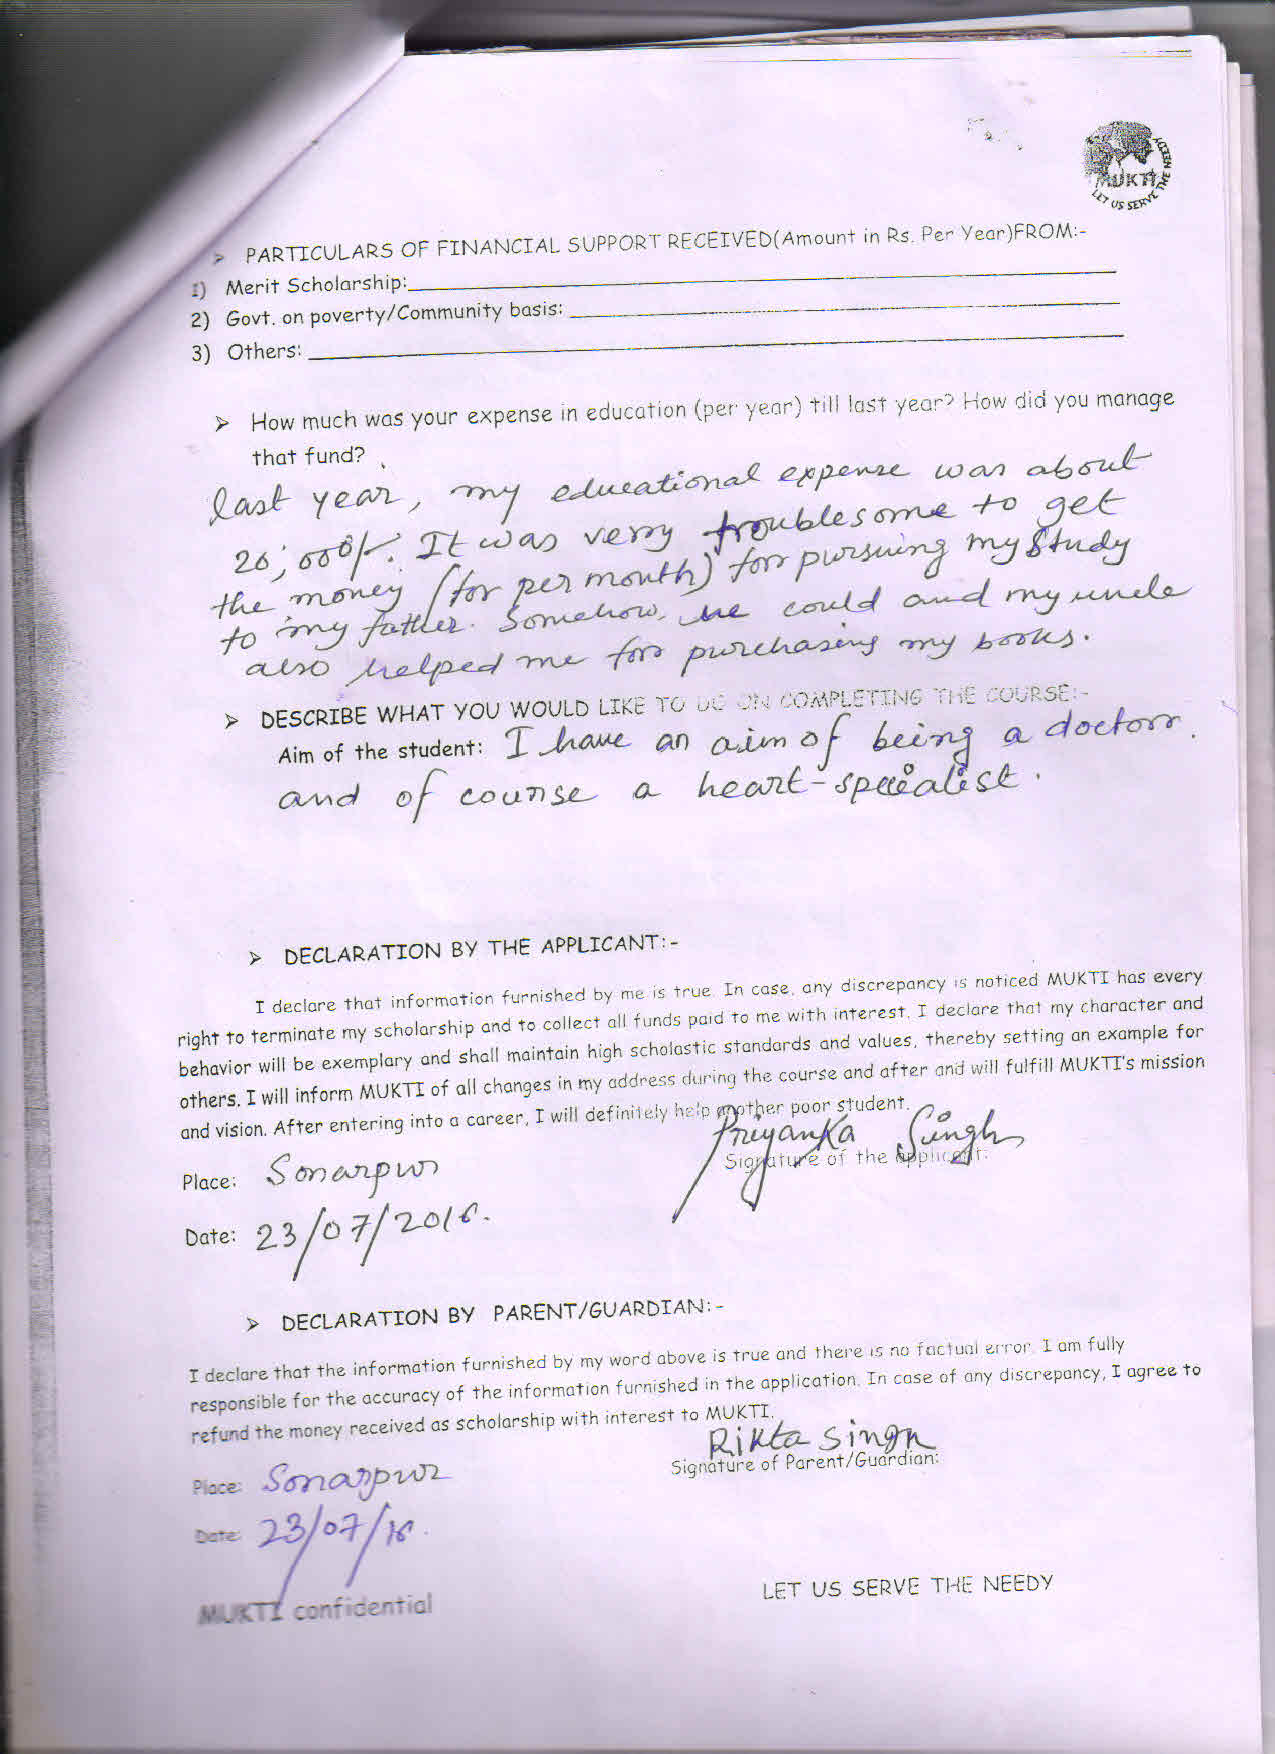 MUKTI
LET US SERVE THE NEEDY
➢ PARTICULARS OF FINANCIAL SUPPORT RECEIVED(Amount in Rs. Per Year)FROM:-
1) Merit Scholarship:
2) Govt. on poverty/Community basis:
3) Others:
➢ How much was your expense in education (per year) till last year? How did you manage
that fund?
last year, my educational expense was about
20,000/-. It was verry troublesome to get
the money (for per month) for pursuing my study
to my father. Somehow, he could and my uncle
also helped me for purchasing my books.
➢ DESCRIBE WHAT YOU WOULD LIKE TO BE ON COMPLETING THE COURSE:-
Aim of the student: I have an aim of being a doctorr.
and of course a heart-specialist.
➢ DECLARATION BY THE APPLICANT:-
I declare that information furnished by me is true. In case, any discrepancy is noticed MUKTI has every
right to terminate my scholarship and to collect all funds paid to me with interest. I declare that my character and
behavior will be exemplary and shall maintain high scholastic standards and values, thereby setting an example for
others. I will inform MUKTI of all changes in my address during the course and after and will fulfill MUKTI's mission
and vision. After entering into a career, I will definitely help another poor student.
Priyanka Singh
Signature of the applicant:
Place: Sonarpur
Date: 23/07/2016.
➢ DECLARATION BY PARENT/GUARDIAN:-
I declare that the information furnished by my word above is true and there is no factual error. I am fully
responsible for the accuracy of the information furnished in the application. In case of any discrepancy, I agree to
refund the money received as scholarship with interest to MUKTI.
Rikta Singh
Signature of Parent/Guardian:
Place: Sonarpur
Date: 23/07/16.
LET US SERVE THE NEEDY
MUKTI confidential